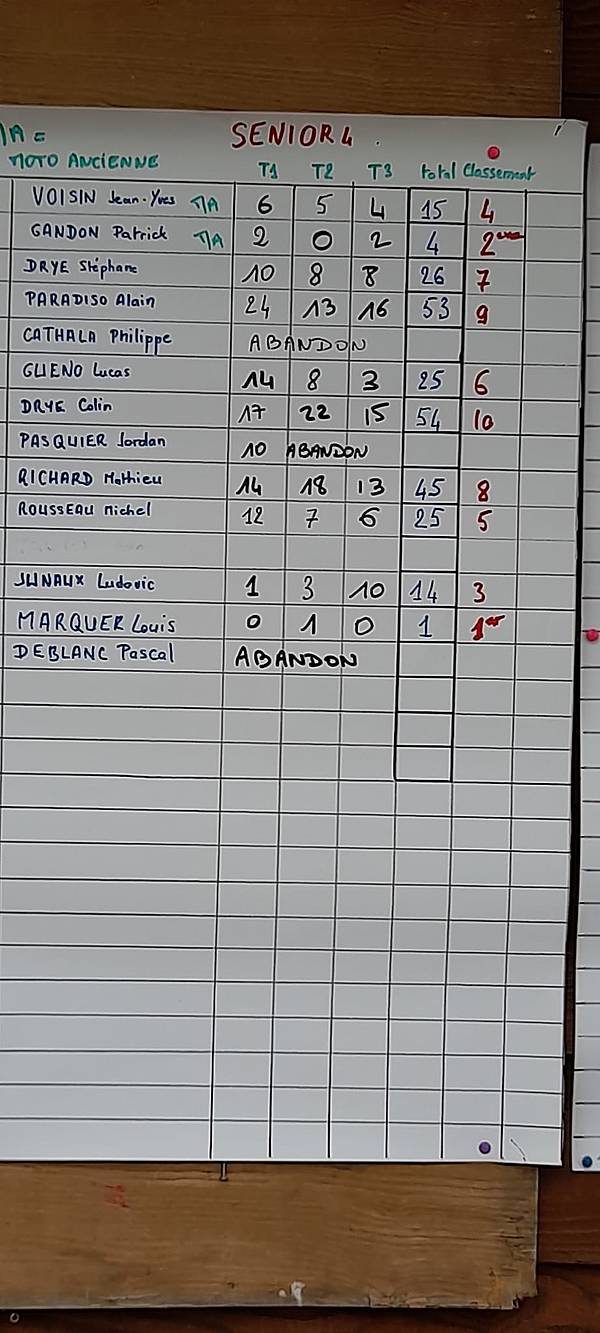 SENIOR 4
MOTO ANCIENNE T1 T2 T3 total Classement
VOISIN Jean-Yves MA 6 5 4 15 4
GANDON Patrick MA 2 0 2 4 2
DRYE Stéphane 10 8 8 26 7
PARADISO Alain 24 13 16 53 9
CATHALA Philippe ABANDON
GUENO Lucas 14 8 3 25 6
DRYE Colin 17 22 15 54 10
PASQUIER Jordan 10 ABANDON
RICHARD Mathieu 14 18 13 45 8
ROUSSEAU Michel 12 7 6 25 5
JUNAUX Ludovic 1 3 10 14 3
MARQUER Louis 0 1 0 1 1er
DEBLANC Pascal ABANDON